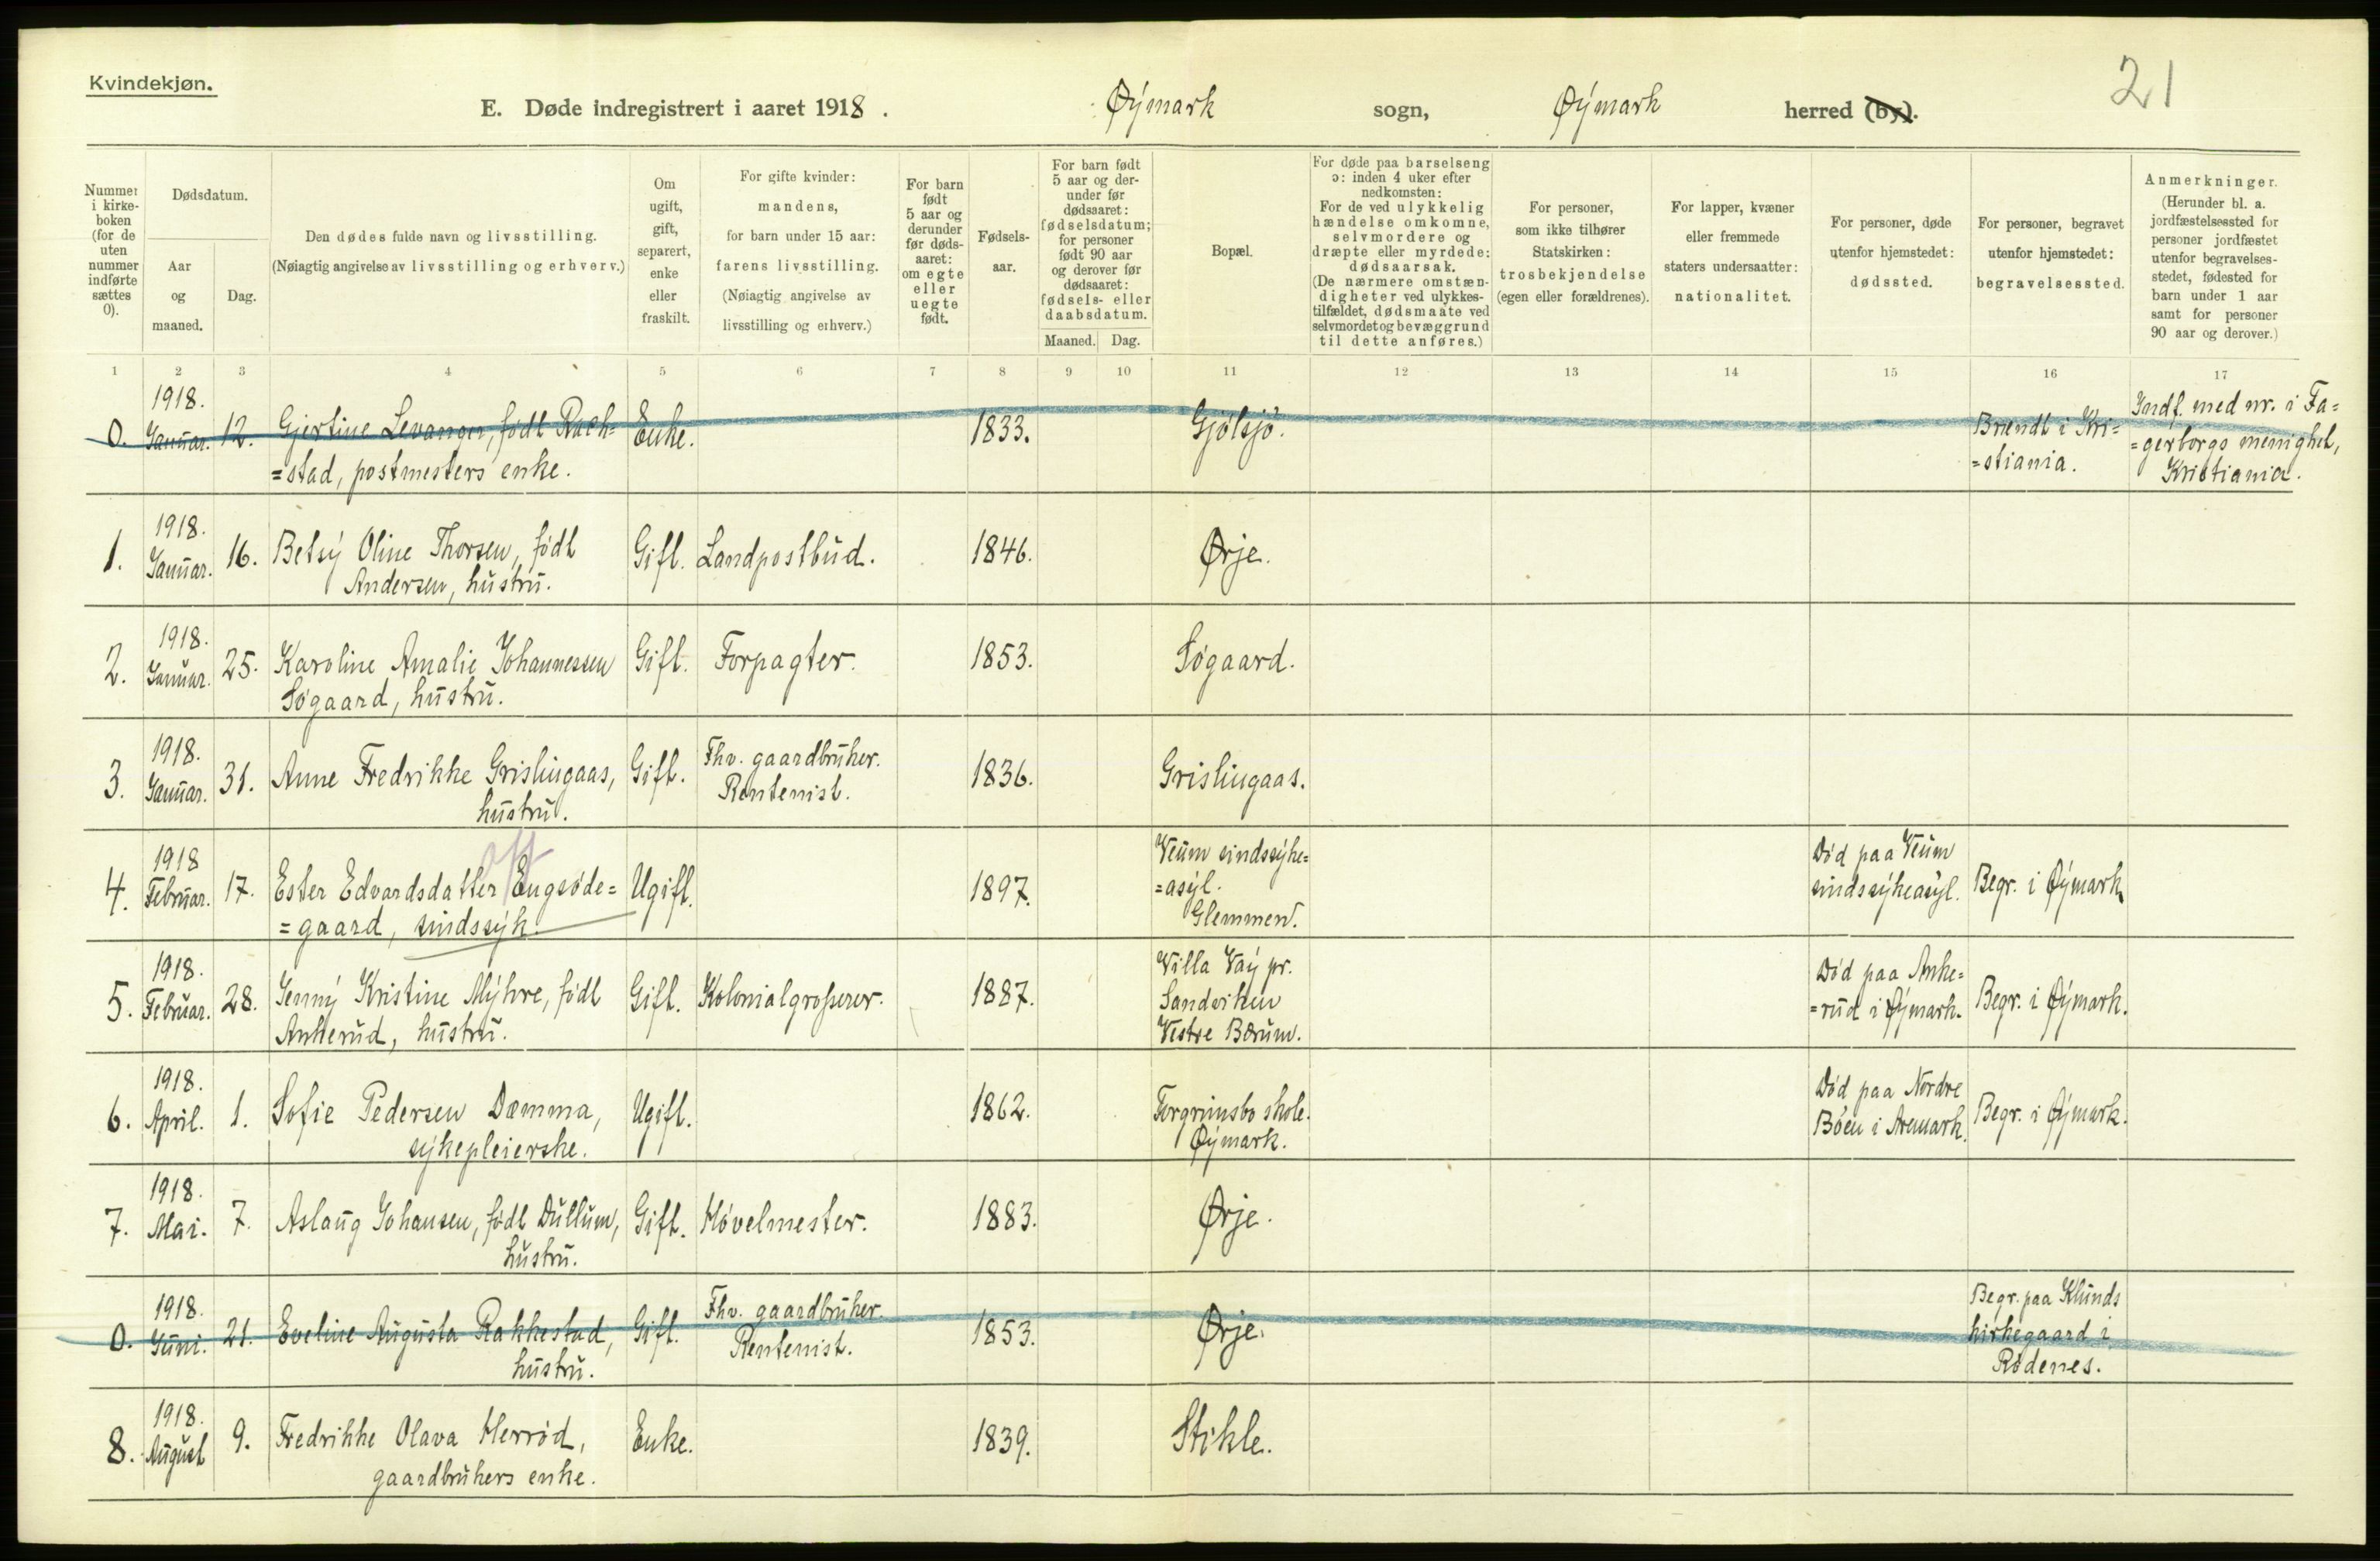 Kvindekjøn.
21
E. Døde indregistrert i aaret 1918. Øýmark sogn, Øýmark herred (by).
Nummer
i kirke-
boken
(for de
uten
nummer
indførte
sættes
0).
Dødsdatum.
Aar
og
maaned.
Dag.
Den dødes fulde navn og livsstilling.
(Nøiagtig angivelse av livsstilling og erhverv.)
Om
ugift,
gift,
separert,
enke
eller
fraskilt.
For gifte kvinder:
mandens,
for barn under 15 aar:
farens livsstilling.
(Nøiagtig angivelse av
livsstilling og erhverv.)
For barn
født
5 aar og
derunder
før døds-
aaret:
om egte
eller
uegte
født.
Fødsels-
aar.
For barn født
5 aar og der-
under før
dødsaaret:
fødselsdatum;
for personer
født 90 aar
og derover før
dødsaaret:
fødsels- eller
daabsdatum.
Maaned. Dag.
Bopæl.
For døde paa barselseng
ɔ: inden 4 uker efter
nedkomsten:
For de ved ulykkelig
hændelse omkomne,
selvmordere og
dræpte eller myrdede:
dødsaarsak.
(De nærmere omstæn-
digheter ved ulykkes-
tilfældet, dødsmaate ved
selvmordet og bevæggrund
til dette anføres.)
For personer,
som ikke tilhører
Statskirken:
trosbekjendelse
(egen eller forældrenes).
For lapper, kvæner
eller fremmede
staters undersaatter:
nationalitet.
For personer, døde
utenfor hjemstedet:
dødssted.
For personer, begravet
utenfor hjemstedet:
begravelsessted.
Anmerkninger.
(Herunder bl. a.
jordfæstelsessted for
personer jordfæstet
utenfor begravelses-
stedet, fødested for
barn under 1 aar
samt for personer
90 aar og derover.)
1 2 3 4 5 6 7 8 9 10 11 12 13 14 15 16 17
0.
1918.
Januar.
12.
Gjertine Levanger, født Rach=
=stad, postmesters enke.
Enke.
1833.
Gjølsjø.
Brændt i Kri=
=stiania.
Indf. med nr. i Fa=
=gerborgs menighet,
Kristiania.
1.
1918.
Januar.
16.
Betsý Oline Thorsen, født
Andersen, hustru.
Gift.
Landpostbud.
1846.
Ørje.
2.
1918.
Januar.
25.
Karoline Amalie Johannessen
Søgaard, hustru.
Gift.
Forpagter.
1853.
Søgaard.
3.
1918.
Januar.
31.
Anne Fredrikke Grislingaas,
hustru.
Gift.
Fhv. gaardbruker.
Rentenist.
1836.
Grislingaas.
4.
1918
Februar.
17.
Ester Edvardsdatter Engsøde=
=gaard, sindssýk.
Ugift.
1897.
Veum sindssýke=
=asýl.
Glemmen.
Død paa Veum
sindssýkeasýl.
Begr. i Øýmark
5.
1918.
Februar.
28.
Jenný Kristine Mýhre, født
Ankerud, hustru.
Gift.
Kolonialgrosserer.
1887.
Villa Vaý pr.
Sandviken
Vestre Bærum.
Død paa Anke=
=rud i Øýmark.
Begr. i Øýmark.
6.
1918.
April.
1.
Sofie Pedersen Dæmma,
sýkepleierske.
Ugift.
1862.
Torgrimsbo skole.
Øýmark.
Død paa Nordre
Bøen i Aremark.
Begr. i Øýmark.
7.
1918.
Mai.
7.
Aslaug Johansen, født Dullum,
hustru.
Gift.
Høvelmester.
1883.
Ørje.
0.
1918.
Juni.
21.
Eveline Augusta Rakkestad,
hustru.
Gift.
Fhv. gaardbruker.
Rentenist.
1853.
Ørje.
Begr. paa Klunds
kirkegaard i
Rødenes.
8.
1918.
August
9.
Fredrikke Olava Herrød,
gaardbrukers enke.
Enke.
1839.
Stikle.